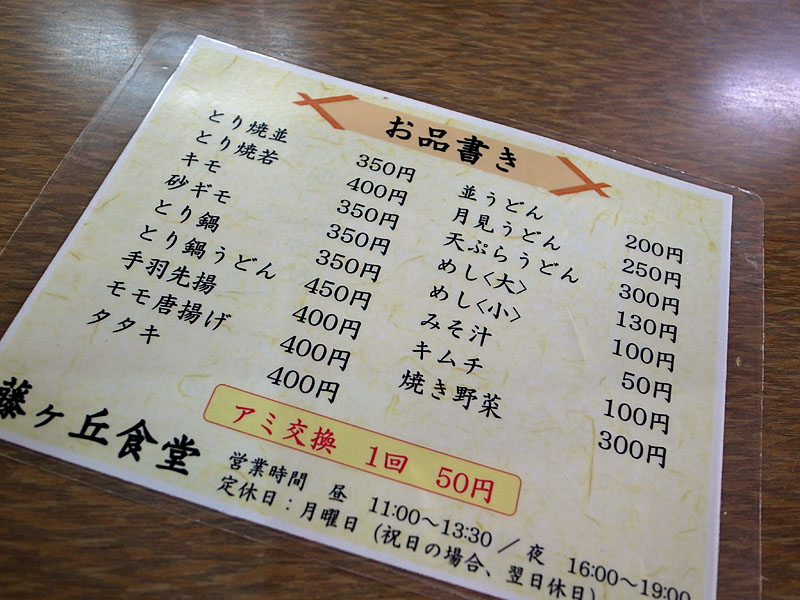 お品書き
とり焼並 350円
とり焼若 400円
キモ 350円
砂ギモ 350円
とり鍋 350円
とり鍋うどん 450円
手羽先揚 400円
モモ唐揚げ 400円
タタキ 400円
並うどん 200円
月見うどん 250円
天ぷらうどん 300円
めし<大> 130円
めし<小> 100円
みそ汁 50円
キムチ 100円
焼き野菜 300円
アミ交換 1回 50円
藤ヶ丘食堂
営業時間 昼 11:00〜13:30 / 夜 16:00〜19:00
定休日:月曜日(祝日の場合、翌日休日)